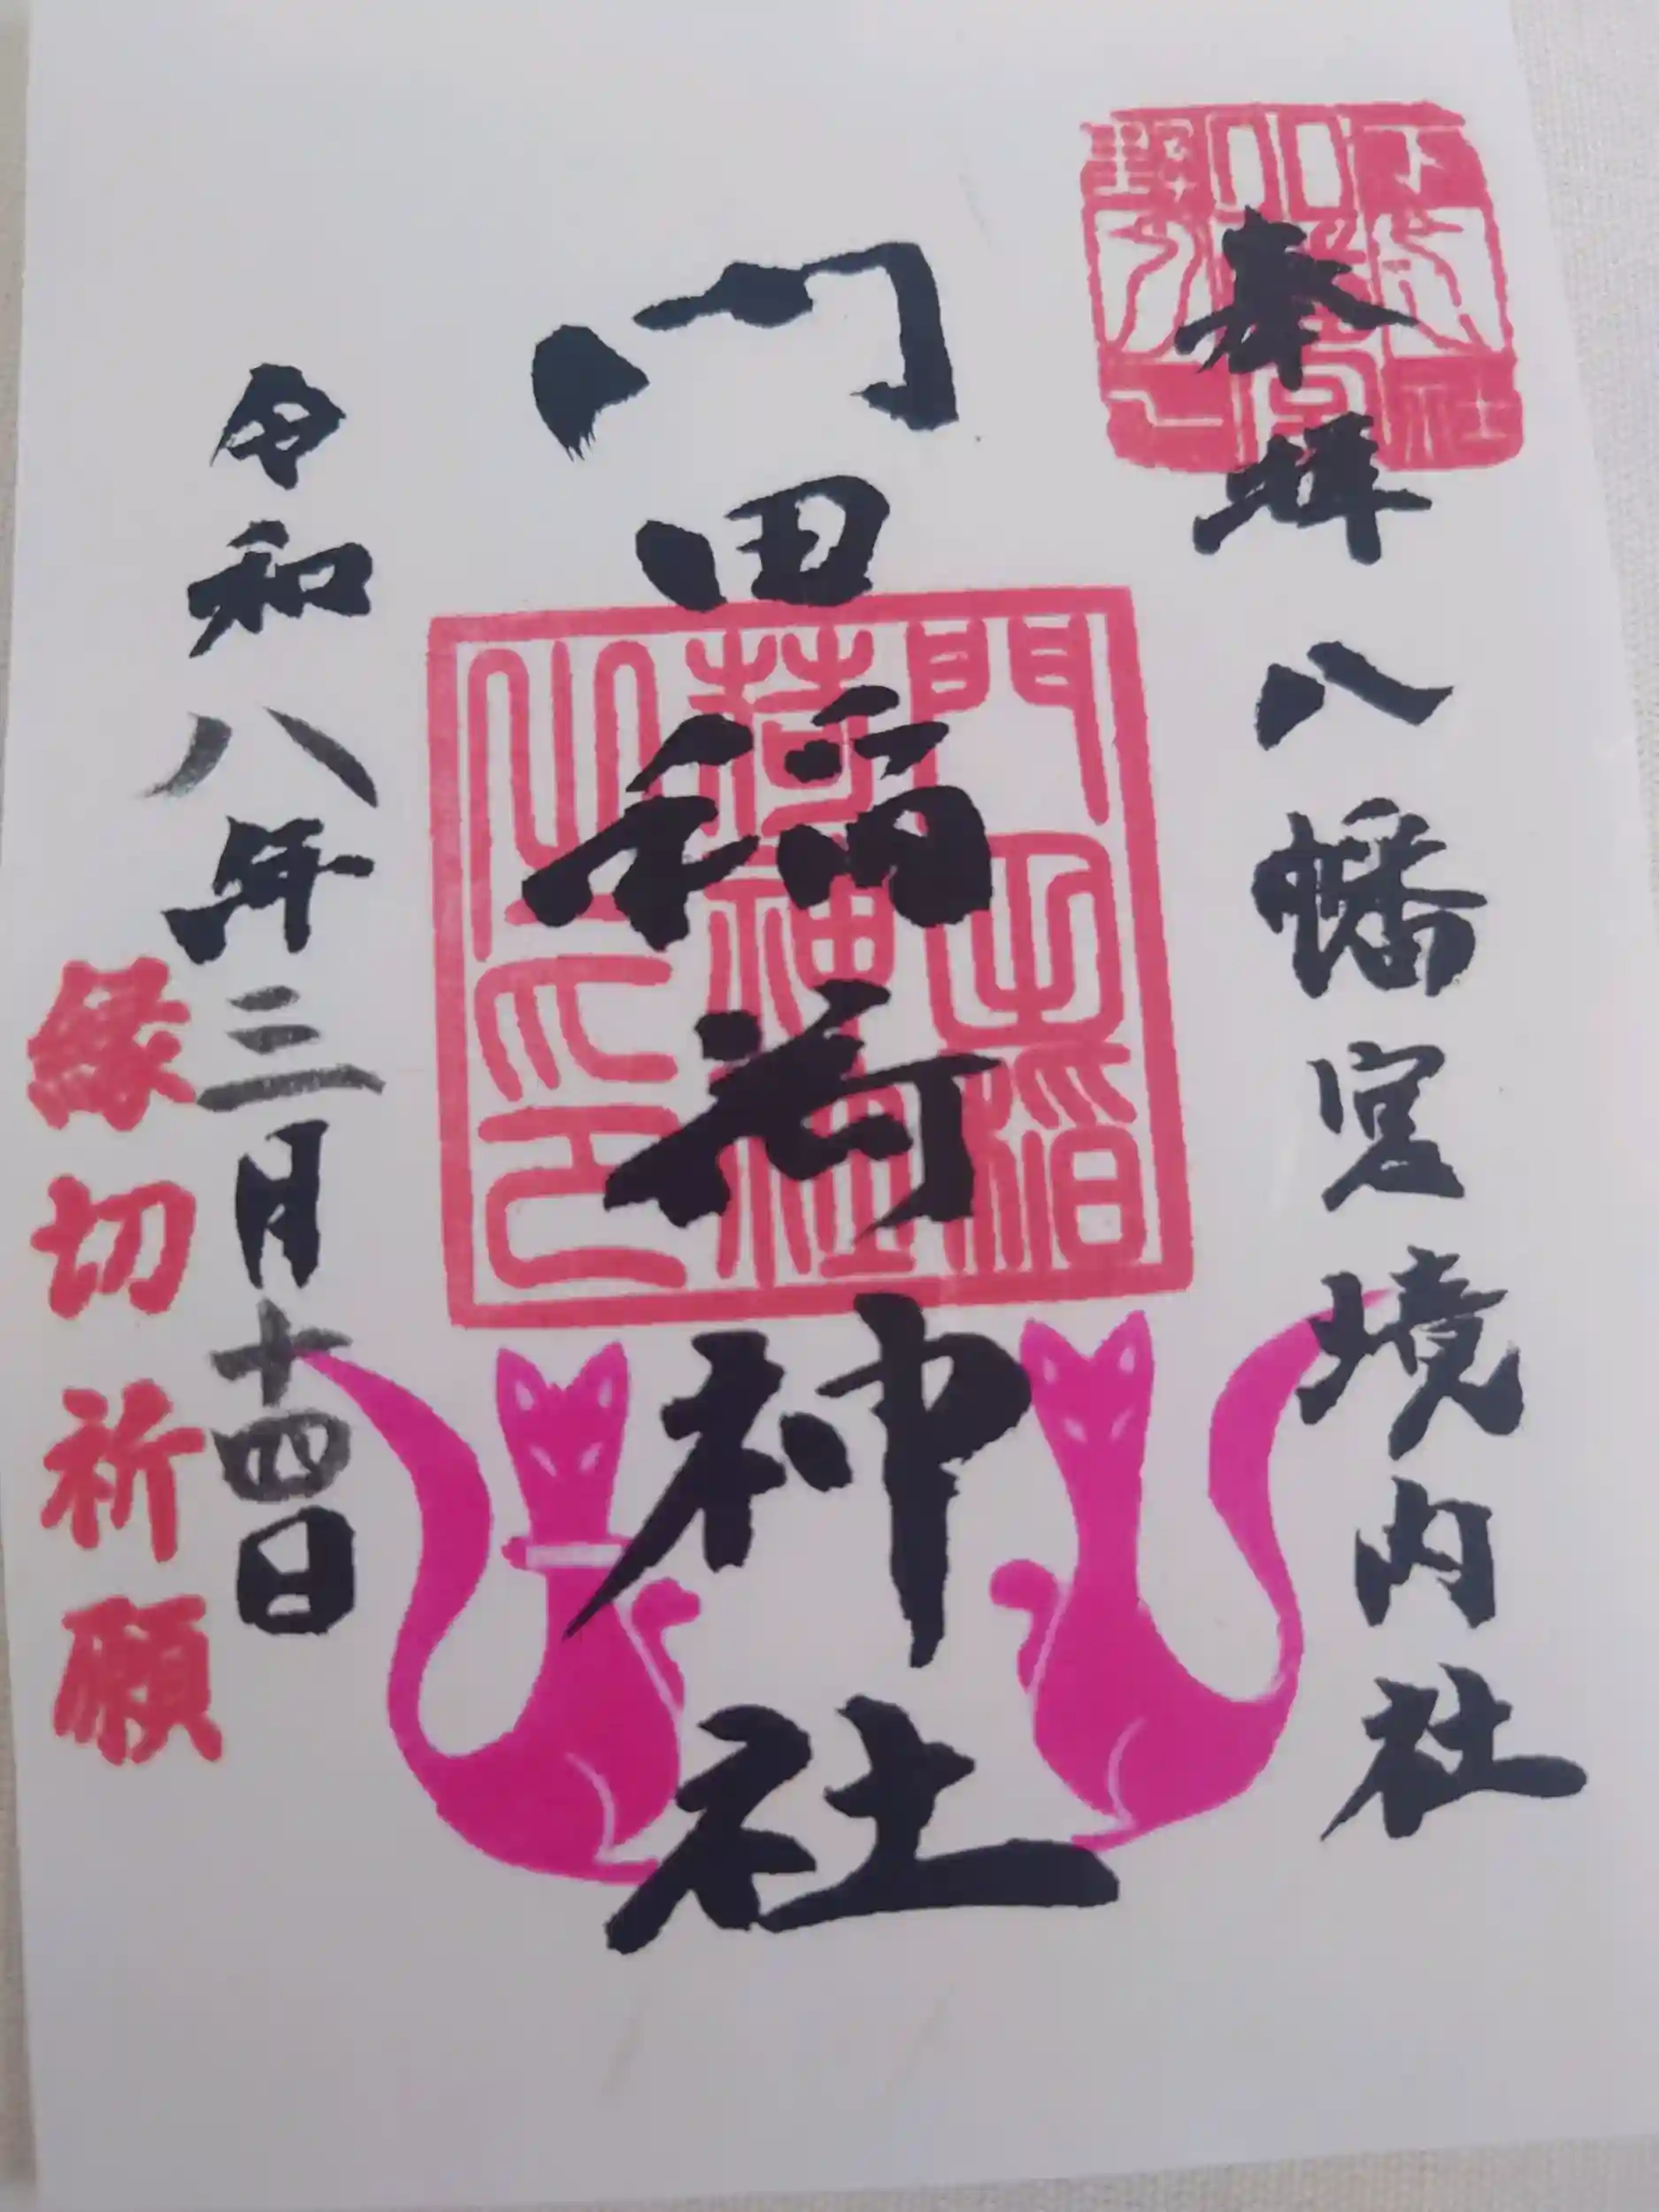 奉拝 八幡宮境内社
門田稲荷神社
門田稲
荷神社
之印
令和八年三月十四日
縁切祈願